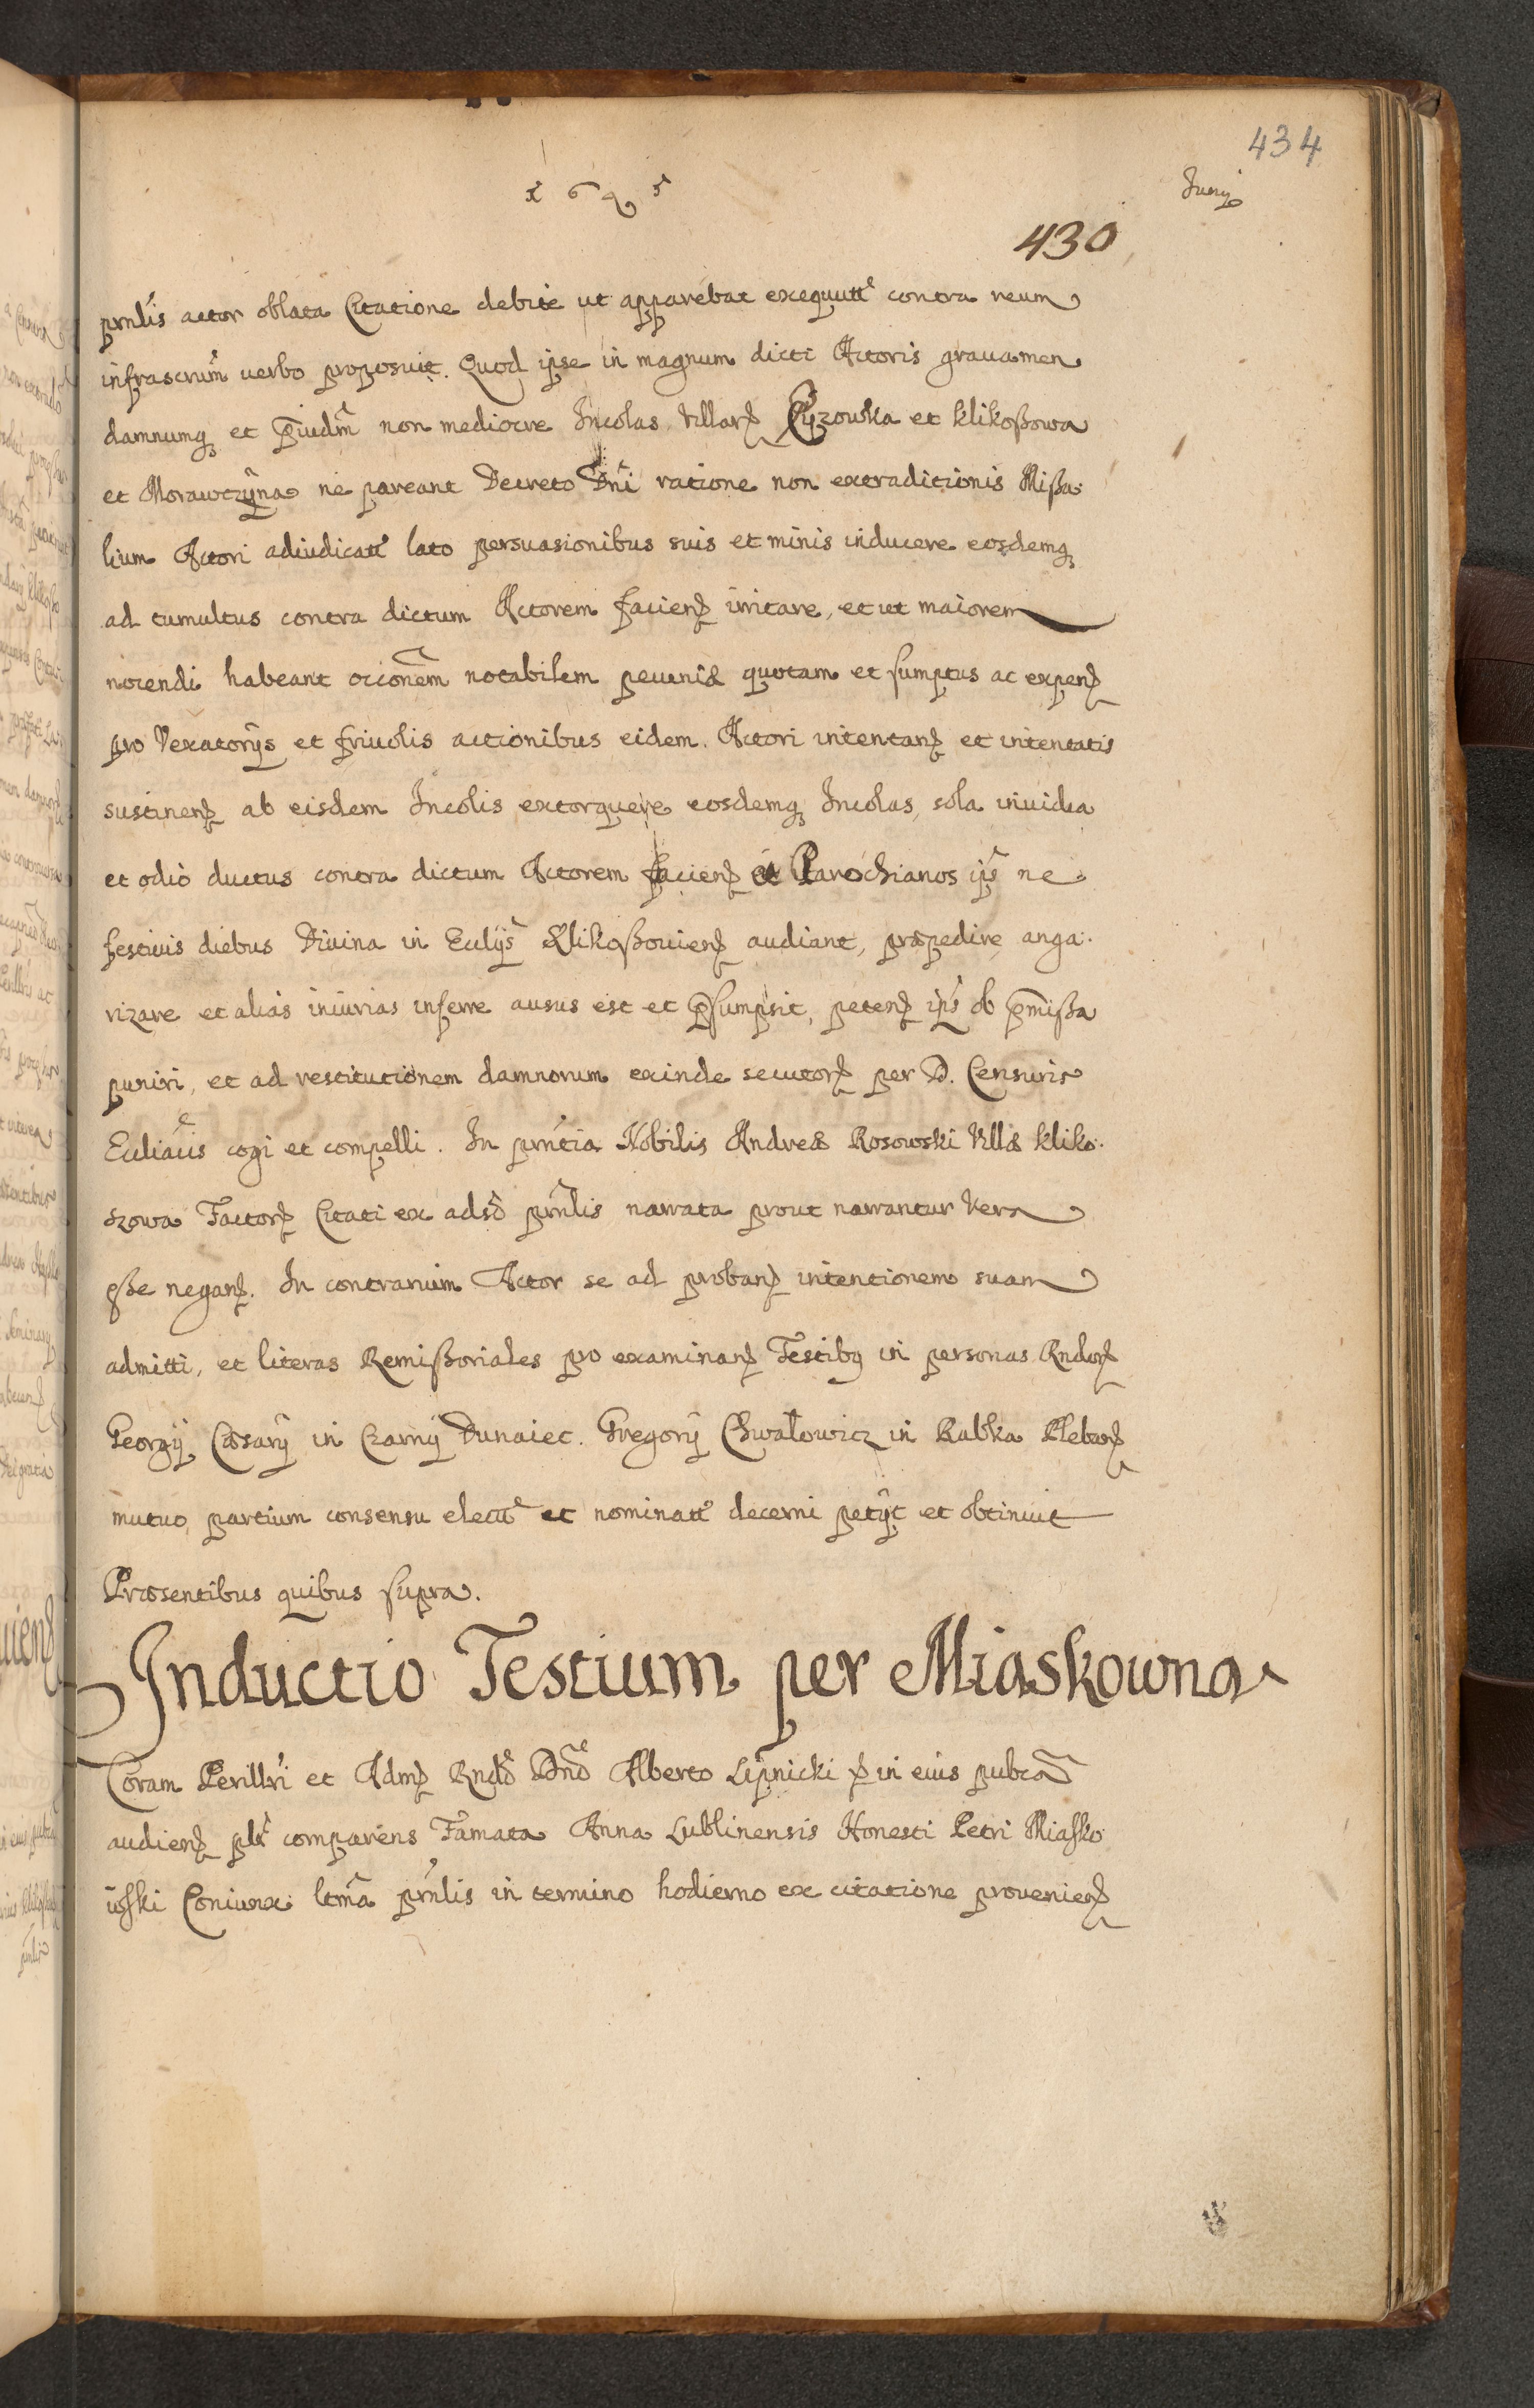 434
1695
Juny
430
prnlis actor oblata Citatione debite ut apparebat exequutt contra reum
infrascrum uerbo proposuit. Quod ipse in magnum dicti Actoris grauamen
damnumq et piudm non mediocre Incolas Villarz Pyzowka et Klikoßowa
et Morawczyna ne pareant Decreto Dni ratione non extraditionis Mißa-
lium Actori adiudicatt lato persuasionibus suis et minis inducere eosdemq
ad tumultus contra dictum Actorem faciens irritare, et ut maiorem
nocendi habeant occonem notabilem pecuniæ quotam et sumptus ac expens
pro Vexatorys et friuolis actionibus eidem Actori intentans et intentatis
sustinens ab eisdem Incolis extorquere eosdemq Incolas, sola inuidia
et odio ductus contra dictum Actorem faciens et Parochianos ips ne
festiuis diebus Diuina in Eccliys Klikoßouiens audiant, præpedire anga-
rizare et alias iniurias inferre ausus est et psumpsit, petens ips ob pmißa
puniri, et ad restitutionem damnorum exinde secutorz per D. Censuris
Eccliacis cogi et compelli. In prntia Nobilis Andreæ Rosowski Villæ Kliko-
szowa Factorz Citati ex adso prnlis narrata prout narrantur Vera
eße negans. In contrarium Actor se ad probans intentionem suam
admitti, et literas Remißoriales pro examinans Testibq in personas Rndorz
Georgij Cæsary in Czarny Dunaiec. Gregory Chwałowicz in Rabka Plebanz
mutuo partium consensu electt et nominatt decerni petyt et obtinuit
Præsentibus quibus supra.
Inductio Testium per Miaskowna
Coram Perillri et Admz Rndo Dno Alberto Lipnicki p in eius pubca
audiens plr comparens Famata Anna Lublinensis Honesti Petri Miasko
wski Coniunx ltma prnlis in termino hodierno ex citatione prouenienz